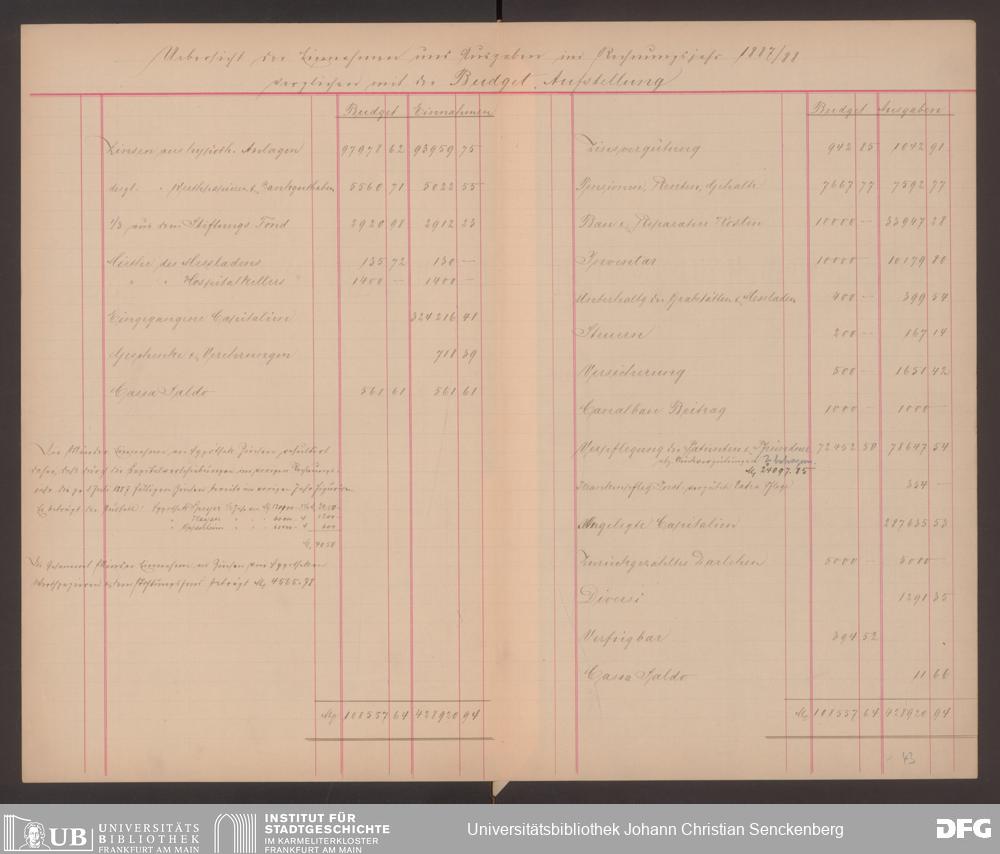 Uebersicht der Einnahmen und Ausgaben im Rechnungsjahr 1887/88
verglichen mit der Budget-Aufstellung
Budget Einnahmen
Zinsen aus hypoth. Anlagen 97978 62 93959 75
desgl. " Werthpapieren & Bankguthaben 5560 71 5022 55
1/3 aus dem Stiftungs Fond 2920 98 2912 23
Miethe des Messladens 135 72 130 —
" " Hospitalkellers 1400 — 1400 —
Eingegangene Capitalien 324216 41
Geschenke & Verehrungen 718 39
Cassa Saldo 561 61 561 61
Der Minder Einnahme an Hypothek Zinsen resultirt
daher, daß durch die
1887 fälligen Zinsen bereits im vorigen Jahr figuriren
Es beträgt der Ausfall: Hypothek Speyer
M 4058
Die Gesammt Minder Einnahme an Zinsen von Hypotheken
Werthpapieren & dem Stiftungsfond beträgt M 4565.78
M 108557 64 428920 94
Budget Ausgaben
Zinsvergütung 942 85 1042 91
Pensionen, Renten, Gehalte 7667 77 7592 77
Bau & Reparatur Kosten 10000 — 33947 28
Inventar 10000 — 10179 80
Unterhaltg der Grabstätten & Messladen 400 — 399 54
Steuern 200 — 167 14
Versicherung 500 — 1651 42
Canalbau Beitrag 1000 — 1000 —
Verpflegung der Patienten & Pfründner 72452 50 78647 54
M 24097.85
Extra Pflege 354 —
Angelegte Capitalien 287635 53
Zurückgezahltes Darlehen 5000 — 5000 —
Diversi 1291 35
Verfügbar 394 52
Cassa Saldo 11 66
M 108557 64 428920 94
43
UB UNIVERSITÄTS
BIBLIOTHEK
FRANKFURT AM MAIN
INSTITUT FÜR
STADTGESCHICHTE
IM KARMELITERKLOSTER
FRANKFURT AM MAIN
Universitätsbibliothek Johann Christian Senckenberg
DFG